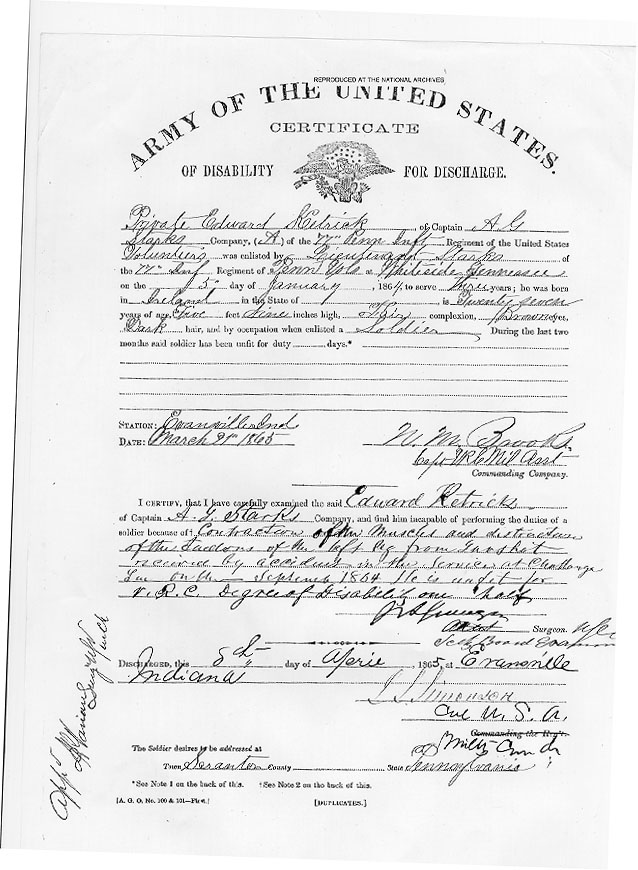 REPRODUCED AT THE NATIONAL ARCHIVES
ARMY OF THE UNITED STATES.
CERTIFICATE
OF DISABILITY FOR DISCHARGE.
Private Edward Hetrick of Captain A G
Starks Company, (A) of the 77th Penn Inft Regiment of the United States
Volunteers was enlisted by Lieutenant Starks of
the 77th Inf Regiment of Penn Vols at Whiteside Tennessee
on the 5th day of January, 1864, to serve three years; he was born
in Ireland in the State of is Twenty seven
years of age, Five feet Nine inches high, Fair complexion, Brown eyes,
Dark hair, and by occupation when enlisted a Soldier During the last two
months said soldier has been unfit for duty days.*
STATION: Evansville Ind
DATE: March 21st 1865
W. M. Brooks
Capt Asst
Commanding Company.
I CERTIFY, that I have carefully examined the said Edward Hetricks
of Captain A. G. Starks Company, and find him incapable of performing the duties of a
soldier because of† Contraction of the Muscles and destruction
of the Tendons of the left leg from Gunshot
received by accident in the Service at Chattanoo
on the September 1864 He is unfit for
V. R. C. Degree of Disability one half
Surgeon.
DISCHARGED, this 8th day of April, 1865, at Evansville
Indiana
Simonson
Col U. S. A.
Commanding the Reg't.
The Soldier desires to be addressed at
Town Scranton County State Pennsylvania
*See Note 1 on the back of this. †See Note 2 on the back of this.
[A. G. O. No. 100 & 101—First.] [DUPLICATES.]